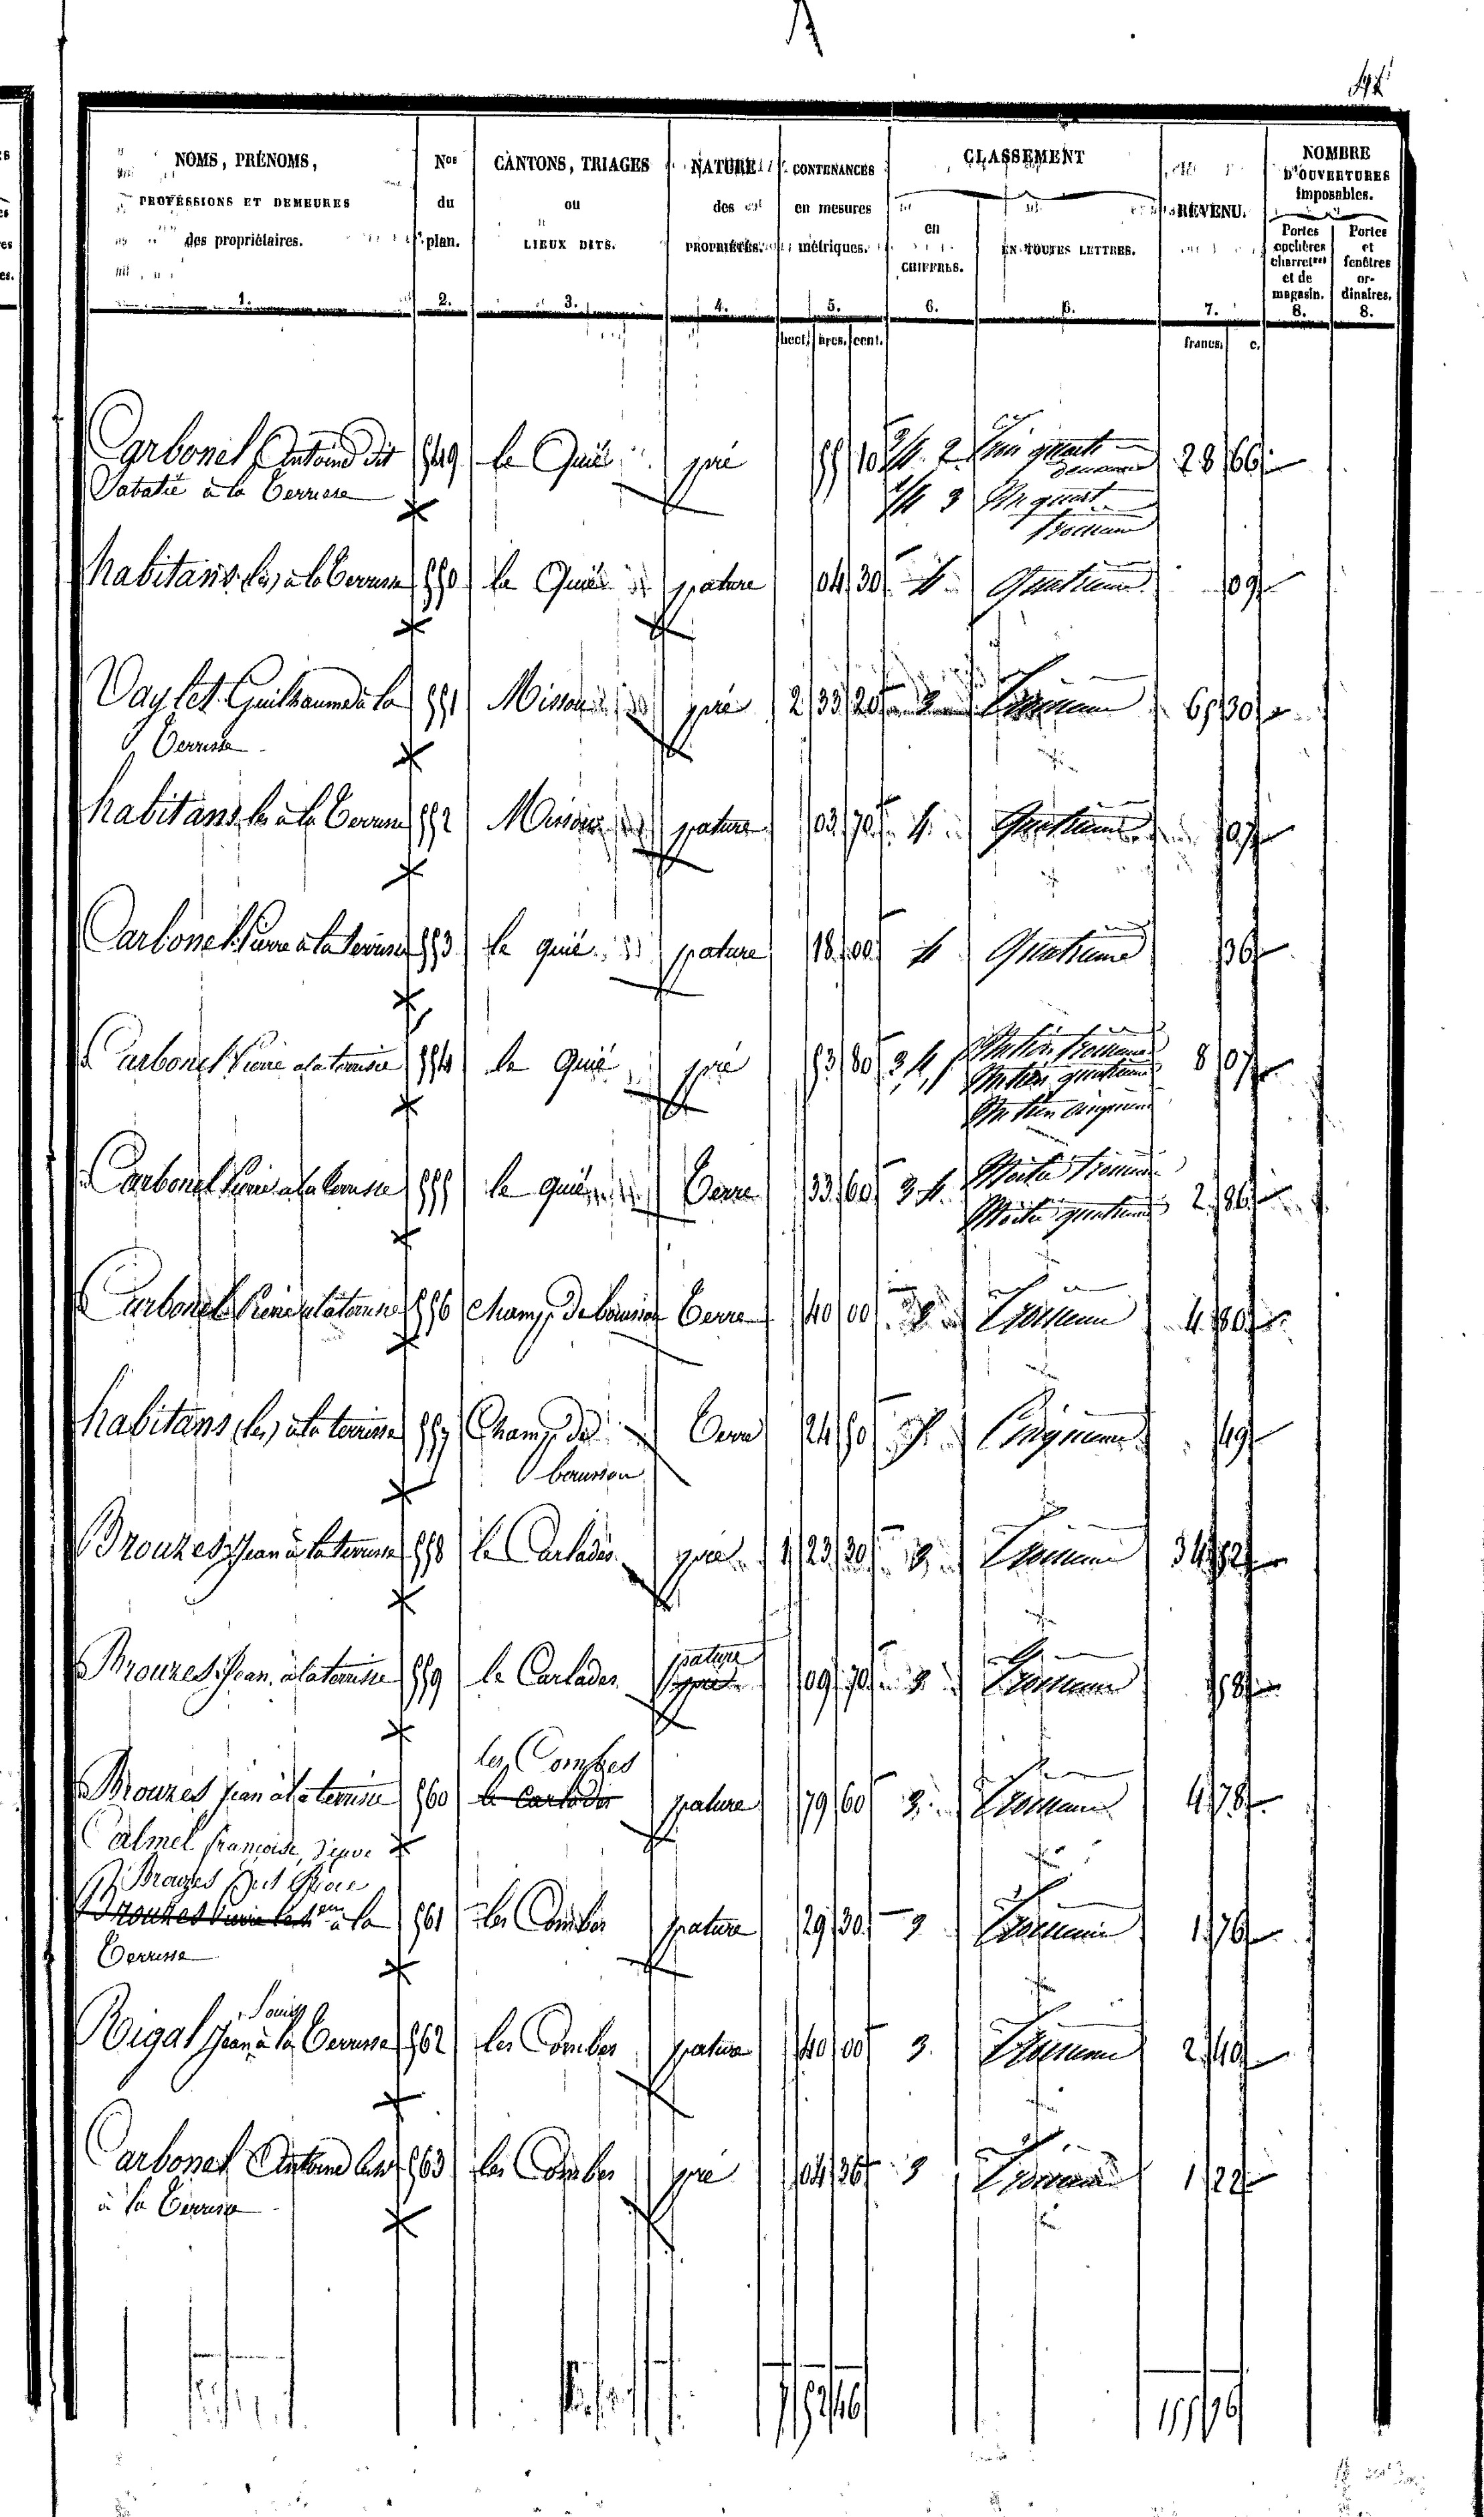 NOMS, PRÉNOMS, PROFESSIONS ET DEMEURES des propriétaires. 1.
Nos du plan. 2.
CANTONS, TRIAGES ou LIEUX DITS. 3.
NATURE des PROPRIÉTÉS. 4.
CONTENANCES en mesures métriques. 5.
CLASSEMENT
en CHIFFRES. 6.
EN TOUTES LETTRES. 6.
REVENU. 7.
NOMBRE D'OUVERTURES imposables.
Portes cochères charretres et de magasin. 8.
Portes et fenêtres ordinaires. 8.
hect. ares. cent.
francs. c.
Carbonel Antoine dit 549 le Quié pré 55 10 3/4 2 Trois quarts deuxieme 28 66
Sabatié à la Terrisse 1/4 3 Un quart troisieme
habitans (les) à la Terrisse 550 le Quié pature 04 30 4 Quatrieme 09
Vaylet Guillaume à la 551 pré 2 33 20 3 Troisieme 65 30
Terrisse
habitans les à la Terrisse 552 pature 03 70 4 Quatrieme 07
Carbonel Pierre à la Terrisse 553 le quié pature 18 00 4 Quatrieme 36
Carbonel Pierre à la terrisse 554 le Quié pré 53 80 3 4 5 Un tiers troisieme 8 07
Un tiers quatrieme
Un tiers cinquieme
Carbonel Pierre à la terrisse 555 le quié Terre 33 60 3 4 Moitié troisieme 2 86
Moitié quatrieme
Carbonel Pierre à la terrisse 556 champ de Terre 40 00 3 Troisieme 4 80
habitans (les) à la terrisse 557 Champ de Terre 24 50 5 Cinquieme 49
Brouzes Jean à la terrisse 558 le Carladés pré 1 23 30 3 Troisieme 34 52
Brouzes Jean à la terrisse 559 le Carlades pature pré 09 70 3 Troisieme 58
les Combes
Brouzes jean à la terrisse 560 le Carlades pature 79 60 3 Troisieme 4 78
Calmel françoise, veuve
Brouzes
Brouzes à la 561 les Combes pature 29 30 3 Troisieme 1 76
Terrisse
Louis
Rigal Jean à la Terrisse 562 les Combes pature 40 00 3 Troisieme 2 40
Carbonel Antoine 563 les Combes pré 04 36 3 Troisieme 1 22
à la Terrisse
7 52 46 155 96